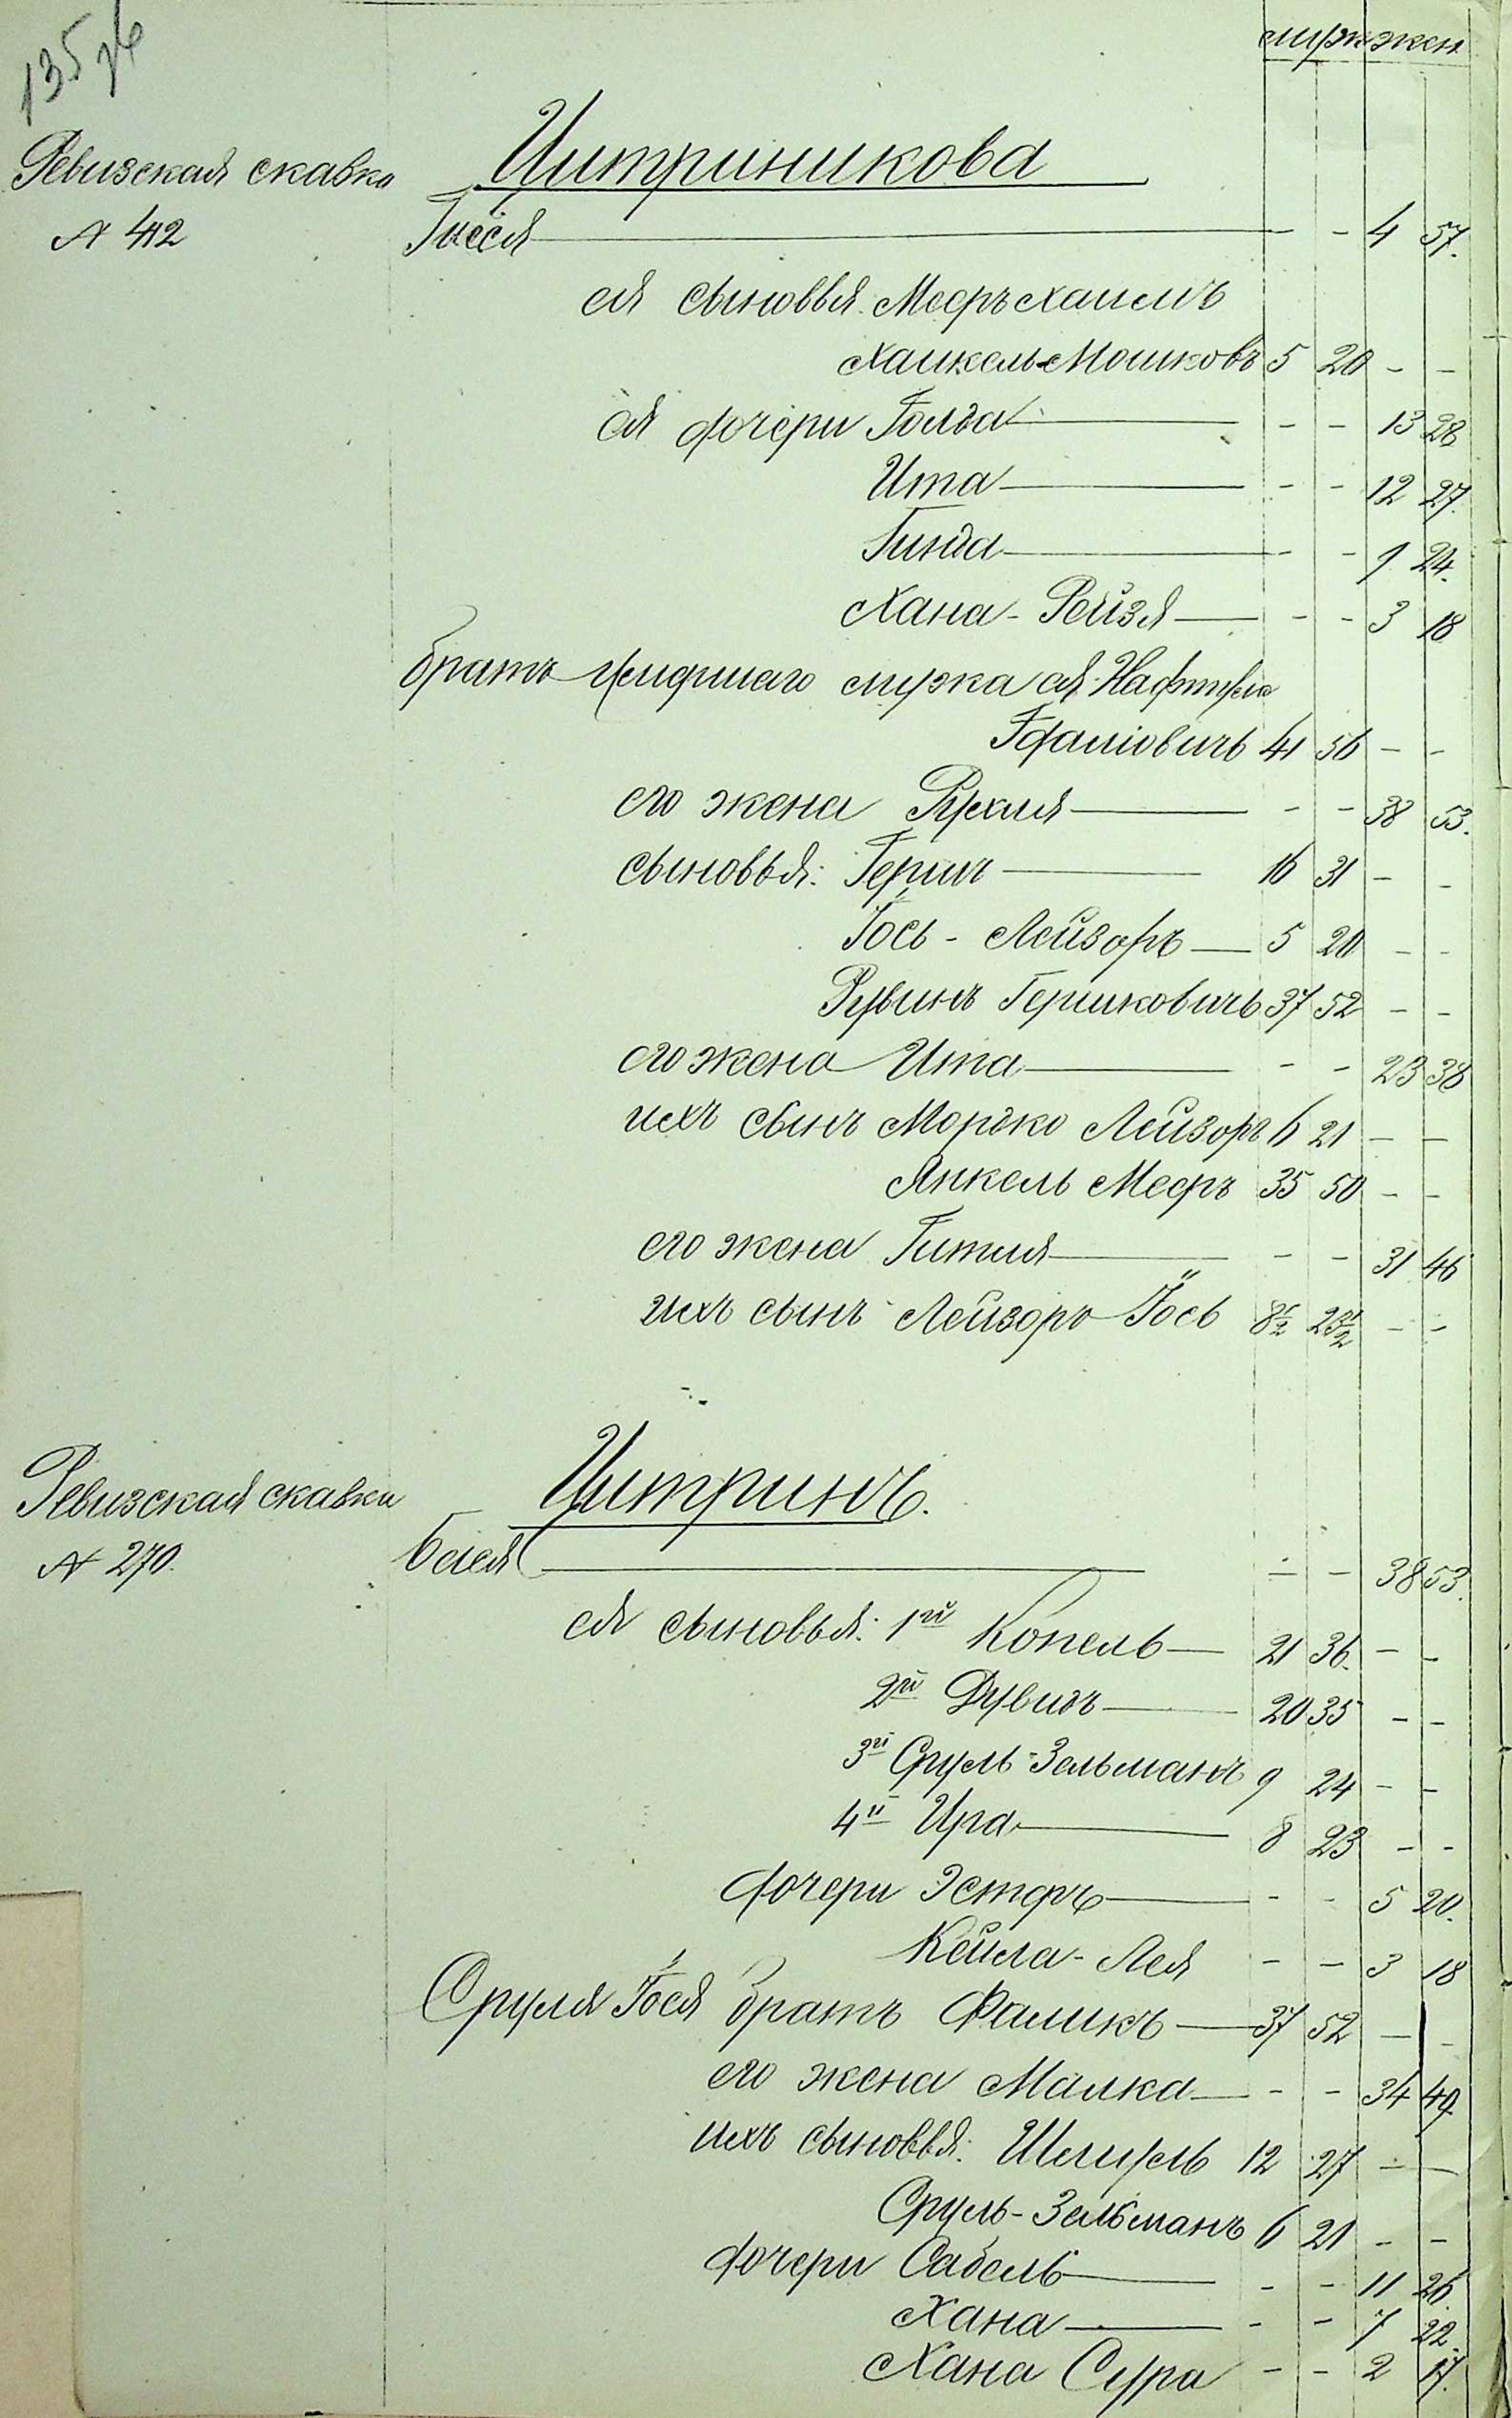 135
муж жен
Ревизская сказка
№ 412
Цитриникова
Гисся — — 4 57.
ея сыновья Меєръ Хаимъ
Хаикель Мошковъ 5 20 — —
ея дочери Голда — — 13 28
Ита — — 12 27.
Гинда — — 9 24.
Хана - Рейзя — — 3 18
братъ умершаго мужа ея Нафтула
Гдаліовичъ 41 56 — —
его жена Рухля — — 38 53.
сыновья: Герш 16 31 — —
Іось - Лейзоръ 5 20 — —
Рувинъ Гершковичъ 37 52 — —
его жена Ита — — 23 38
ихъ сынъ Мордко Лейзоръ 6 21 — —
Янкель Меєръ 35 50 — —
его жена Гитля — — 31 46
ихъ сынъ Лейзоръ Іось 8½ 23½ — —
Ревизская сказка
№ 270.
Цитринъ.
Бася — — 38 53.
ея сыновья: 1й Копель 21 36. — —
2й Дувидъ 20 35 — —
3й Сруль - Зельманъ 9 24 — —
4й Ира 8 23 — —
дочери Эстеръ — — 5 20.
Кейла - Лея — — 3 18
Сруля Іося братъ Фаликъ 37 52 — —
его жена Малка — — 34 49
ихъ сыновья: Шмуль 12 27 — —
Сруль - Зельманъ 6 21 — —
дочери Сабель — — 11 26
Хана — — 7 22.
Хана Сура — — 2 17.